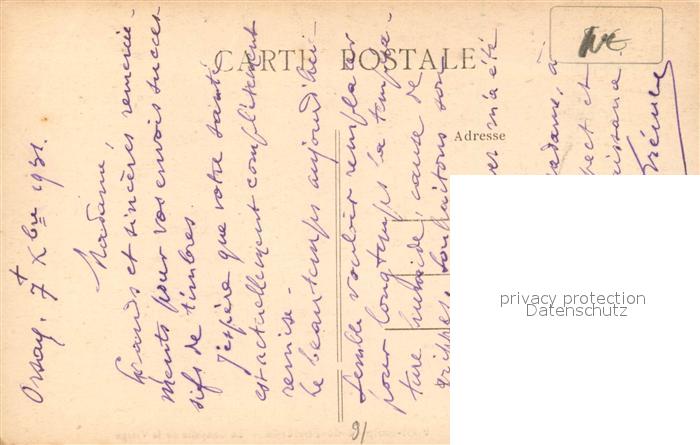 CARTE POSTALE
Adresse
Orsay. 7 Xbre 1931.
Madame,
Grands et sincères remercie-
ments pour vos envois succes
sifs de timbres.
J'espère que votre santé
est actuellement complètement
remise.
Le beau temps aujourd'hui
semble vouloir remplacer
pour longtemps la tempéra-
ture humide, cause de
grippes. Souhaitons son
m'a été
Madame, à
respect et
privacy protection
Datenschutz
91